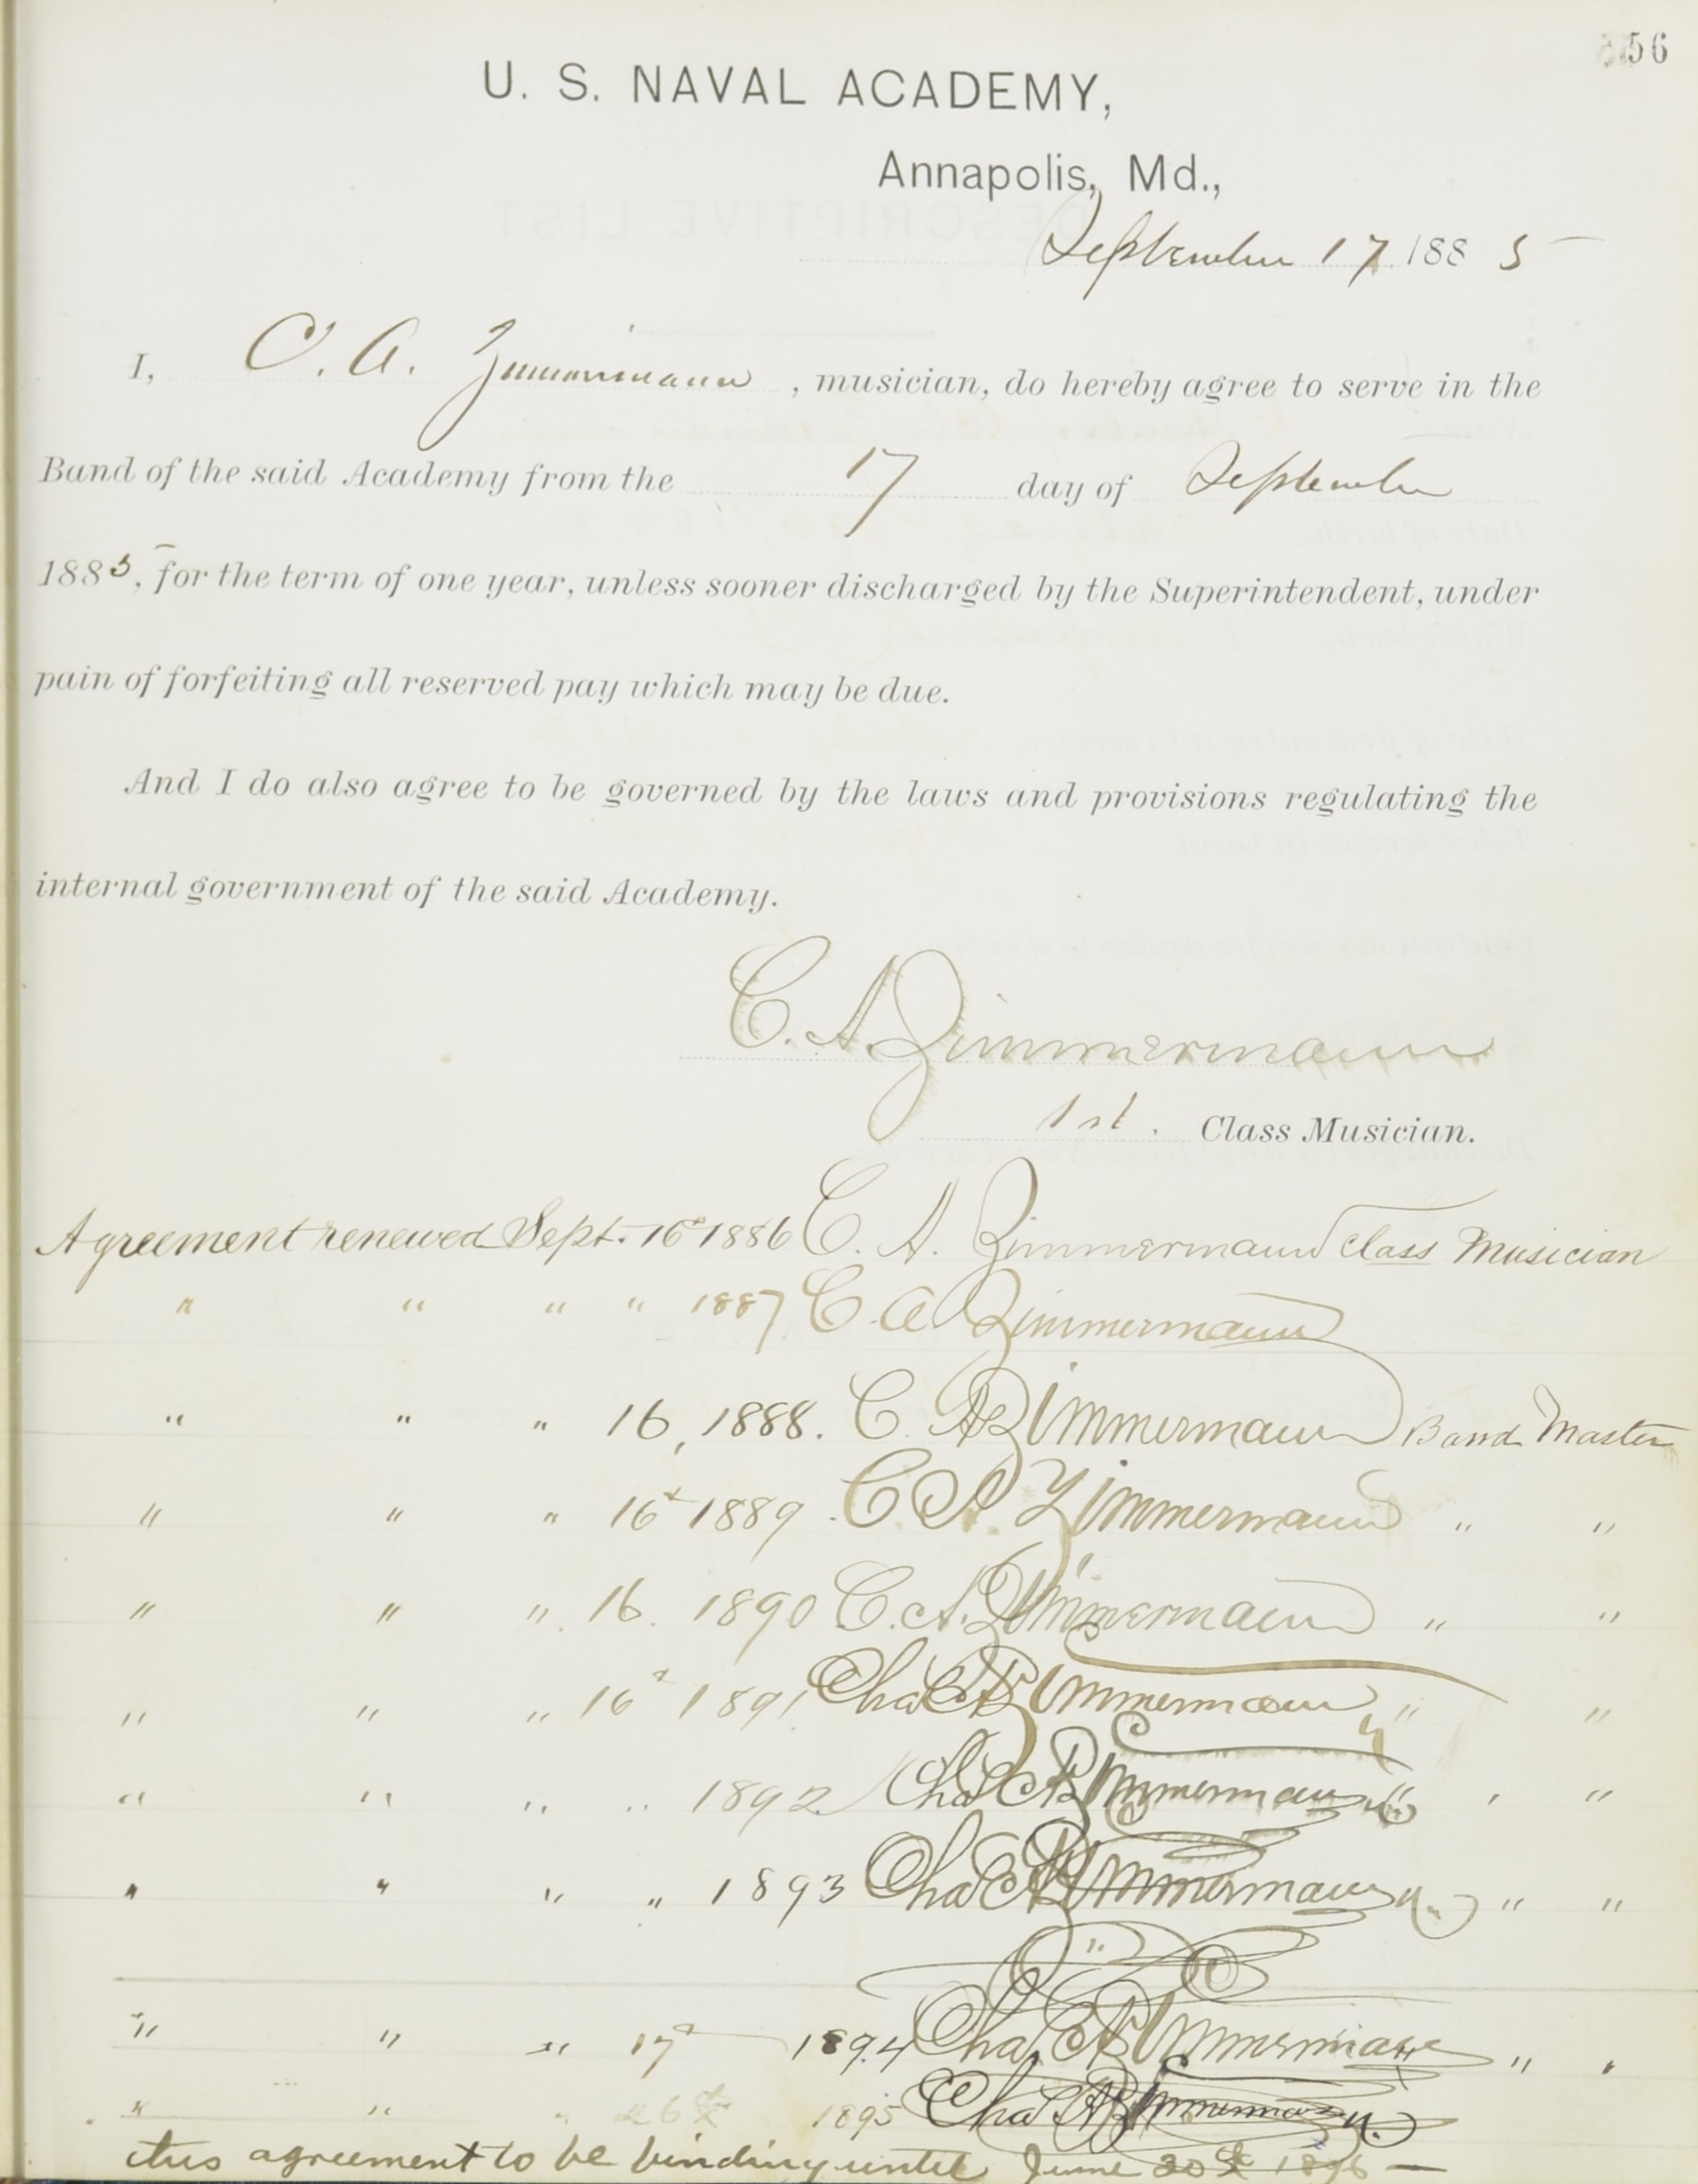 56
U. S. NAVAL ACADEMY,
Annapolis, Md.,
September 17 1885
I, C. A. Zimmermann, musician, do hereby agree to serve in the
Band of the said Academy from the 17 day of September
1885, for the term of one year, unless sooner discharged by the Superintendent, under
pain of forfeiting all reserved pay which may be due.
And I do also agree to be governed by the laws and provisions regulating the
internal government of the said Academy.
C. A. Zimmermann
1st. Class Musician.
Agreement renewed Sept. 16th 1886 C. A. Zimmermann Class Musician
" " " " 1887 C. A. Zimmermann
" " " 16, 1888. C. A. Zimmermann Band Master
" " " 16th 1889. C. A. Zimmermann " "
" " " 16. 1890 C. A. Zimmermann " "
" " " 16th 1891 Chas A Zimmermann " "
" " " " 1892 Chas A Zimmermann " "
" " " " 1893 Chas A Zimmermann " "
" " " 17th 1894 Chas A Zimmermann " "
" " " 26th 1895 Chas A Zimmermann
this agreement to be binding until June 30th 1896 —